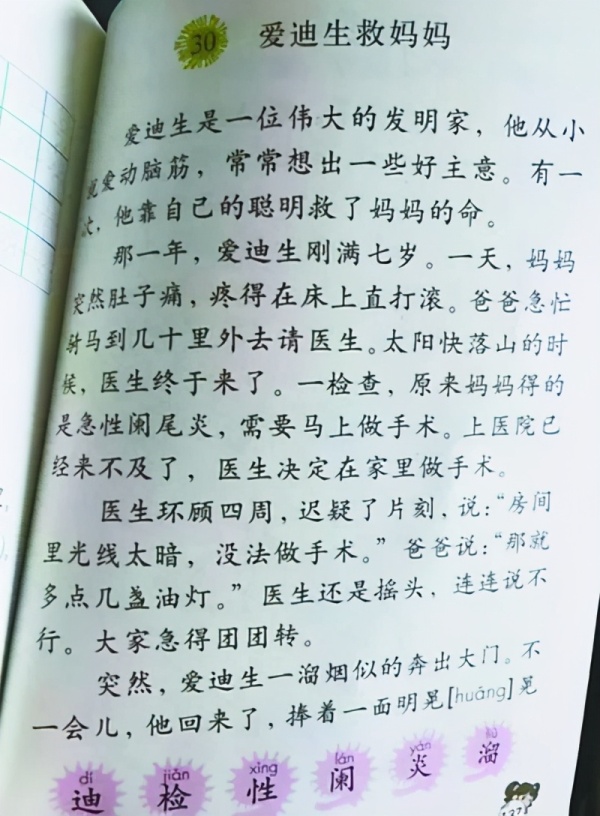 30 爱迪生救妈妈
爱迪生是一位伟大的发明家，他从小
就爱动脑筋，常常想出一些好主意。有一
次，他靠自己的聪明救了妈妈的命。
那一年，爱迪生刚满七岁。一天，妈妈
突然肚子痛，疼得在床上直打滚。爸爸急忙
骑马到几十里外去请医生。太阳快落山的时
候，医生终于来了。一检查，原来妈妈得的
是急性阑尾炎，需要马上做手术。上医院已
经来不及了，医生决定在家里做手术。
医生环顾四周，迟疑了片刻，说：“房间
里光线太暗，没法做手术。”爸爸说：“那就
多点几盏油灯。”医生还是摇头，连连说不
行。大家急得团团转。
突然，爱迪生一溜烟似的奔出大门。不
一会儿，他回来了，捧着一面明晃[huǎng]晃
dí jiǎn xìng lán yán liū
迪 检 性 阑 炎 溜
127